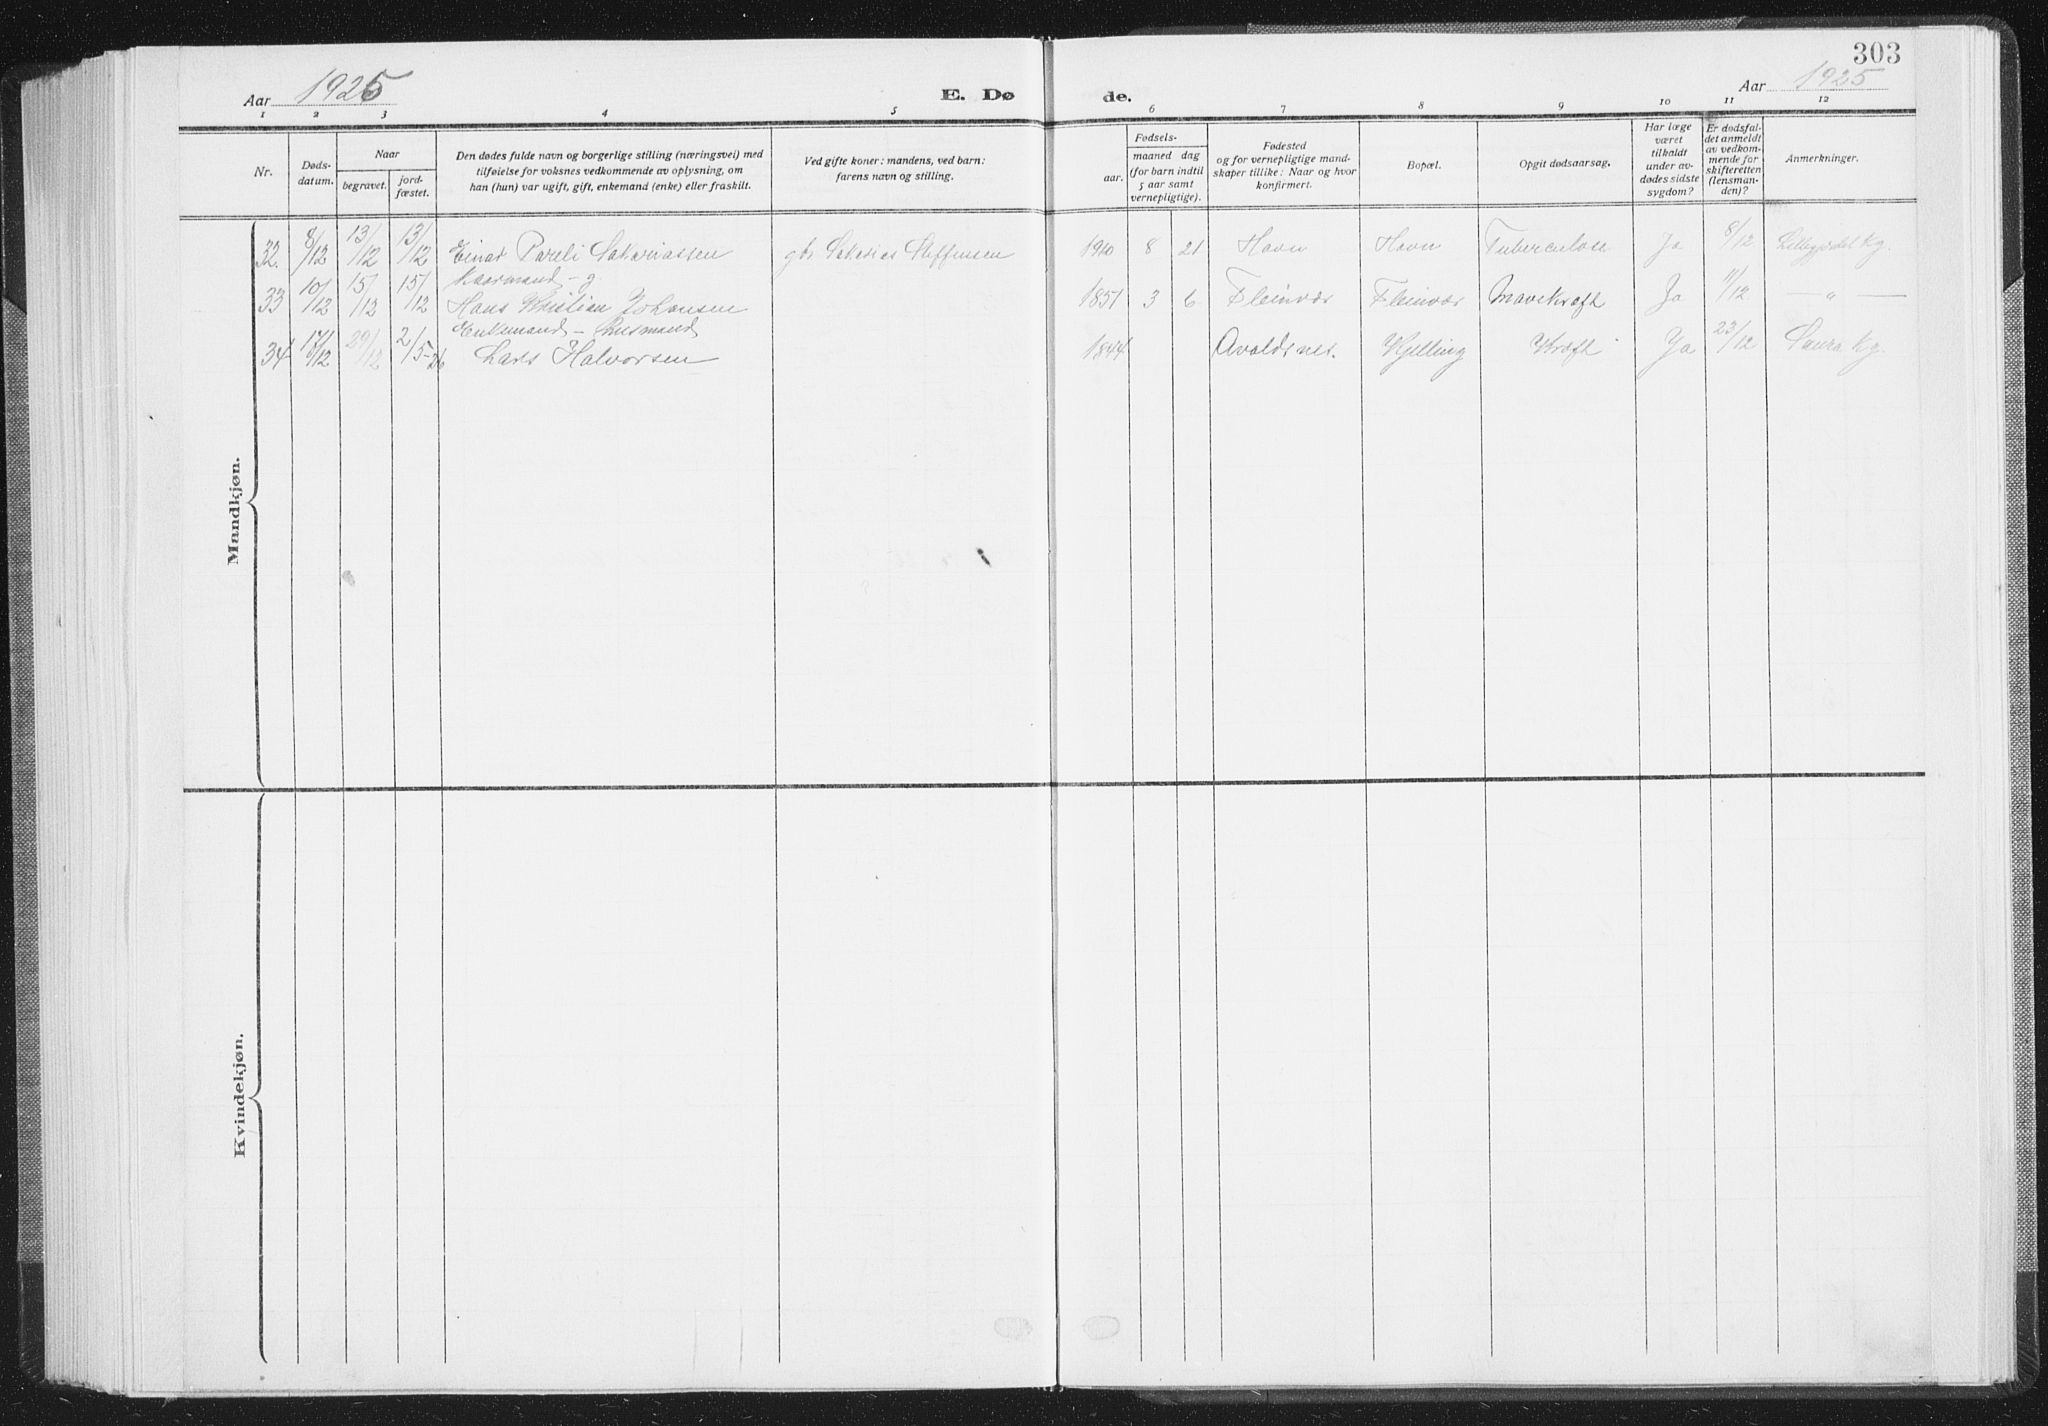 303
Aar 1925 E. Dø de. Aar 1925
1 2 3 4 5 6 7 8 9 10 11 12
Nr.
Døds-
datum.
Naar
begravet.
jord-
fæstet.
Den dødes fulde navn og borgerlige stilling (næringsvei) med
tilføielse for voksnes vedkommende av oplysning, om
han (hun) var ugift, gift, enkemand (enke) eller fraskilt.
Ved gifte koner: mandens, ved barn:
farens navn og stilling.
Fødsels-
aar.
maaned dag
(for barn indtil
5 aar samt
vernepligtige).
Fødested
og for vernepligtige mand-
skaper tillike: Naar og hvor
konfirmert.
Bopæl.
Opgit dødsaarsag.
Har læge
været
tilkaldt
under av-
dødes sidste
sygdom?
Er dødsfal-
det anmeldt
av vedkom-
mende for
skifteretten
(lensman-
den)?
Anmerkninger.
Mandkjøn.
32. 8/12 13/12 13/12 Einar Pareli Sakariassen gb. Sakarias Steffensen 1910 8 21 Havn Havn Tuberculose Ja 8/12 Kg.
Kaarmand - g
33 10/12 15/12 15/12 Hans Kristian Johansen 1851 3 6 Fleinvær Fleinvær Mavekræft Ja 11/12 — " —
Enkemand - Husmand
34 17/12 29/12 2/5-26 Lars Halvorsen 1844 Avaldsnes. Kjelling Kræft Ja 23/12 Saura Kg.
Kvindekjøn.